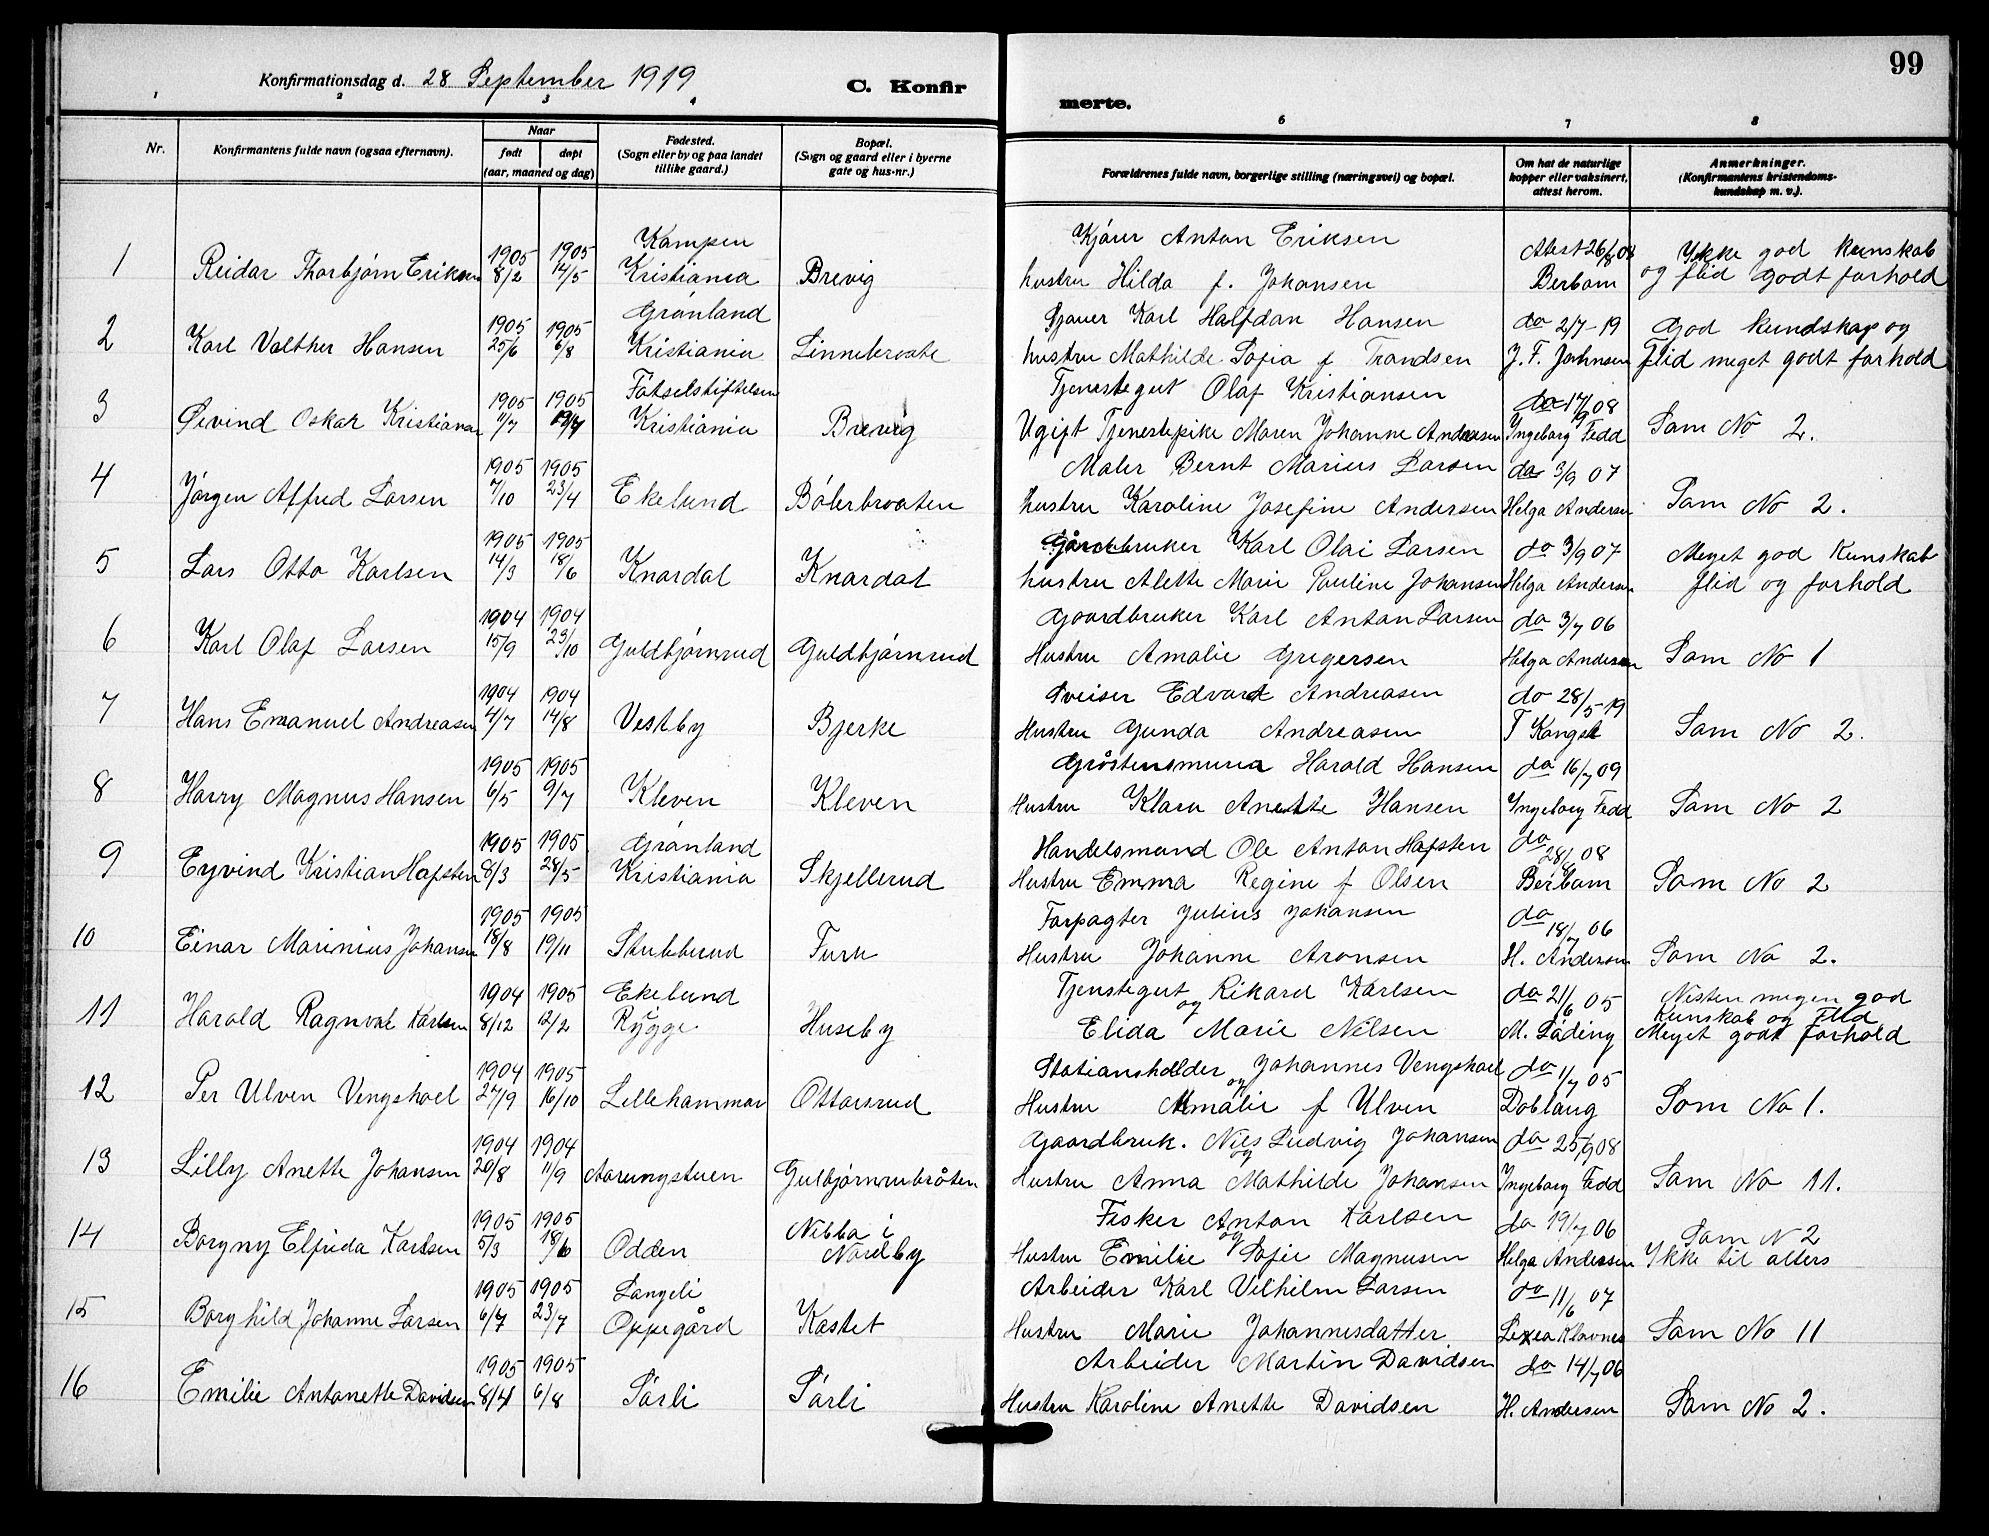 99
Konfirmationsdag d. 28 September 1919
C. Konfirmerte.
1 2 3 4 6 7 8
Nr.
Konfirmantens fulde navn (ogsaa efternavn).
Naar
født døpt
(aar, maaned og dag)
Fødested.
(Sogn eller by og paa landet
tillike gaard.)
Bopæl.
(Sogn og gaard eller i byerne
gate og hus-nr.)
Forældrenes fulde navn, borgerlige stilling (næringsvei) og bopæl.
Om hat de naturlige
kopper eller vaksinert,
attest herom.
Anmerkninger.
(Konfirmantens kristendoms-
kundskap m. v.).
1 Reidar Thorbjørn Eriksen 1905 8/2 1905 14/5 Kampen Kristiania Brevig
Kjører Anton Eriksen
hustru Hilda f. Johansen
Atest 26/8 08
Berbom
Ykke god kunskab
og flid godt forhold
2 Karl Valther Hansen 1905 25/6 1905 6/8 Grønland Kristiania Linnebroate
Karl Halfdan Hansen
hustru Mathilde Sofia f Trondsen
do 2/7-19
J. F. Johnsen
God kundskap og
flid meget godt forhold
3 Øivind Oskar Kristiansen 1905 11/7 1905 Fødselstiftelsen Kristiania Brevig
Tjenestegut Olaf Kristiansen
Ugift Tjenestepike Maren Johanne Andreasen
do 17/9 08
Ingeborg Fedd
Som No 2.
4 Jørgen Alfred Larsen 1905 7/10 1905 23/4 Ekelund Bølerbroaten
Maler Bernt Marius Larsen
hustru Karoline Josefine Andersen
do 3/9 07
Helga Andersen
Som No 2.
5 Lars Otto Karlsen 1905 14/3 1905 18/6 Knardal Knardal
Gårdbruker Karl Olai Larsen
hustru Alette Marie Pauline Johansen
do 3/9 07
Helga Andersen
Meget god Kunskab
flid og forhold
6 Karl Olaf Larsen 1904 15/9 1904 23/10 Guldbjørnrud Guldbjørnrud
Gaardbruker Karl Anton Larsen
Hustru Amalie Gregersen
do 3/7 06
Helga Andersen
Som No 1
7 Hans Emanuel Andreasen 1904 4/7 1904 14/8 Vestby Bjerke
Sveiser Edvard Andreasen
Hustru Gunda Andreasen
do 28/5-19
T
Som No 2.
8 Harry Magnus Hansen 1905 6/5 1905 9/7 Kleven Kleven
Gråstensmurer Harald Hansen
Hustru Klara Anette Hansen
do 16/7 09
Yngeborg Fedd
Som No 2
9 Eyvind Kristian Hafsten 1905 8/3 1905 28/5 Grønland Kristiania Skjellerud
Handelsmand Ole Anton Hafsten
Hustru Emma Regine f Olsen
do 28/8 08
Berbom
Som No 2
10 Einar Marinius Johansen 1905 18/8 1905 19/11 Stubberud Furu
Forpagter Julius Johansen
Hustru Johanne Aronsen
do 18/7 06
H. Andersen
Som No 2.
11 Harald Ragnval Karlsen 1904 8/12 1905 12/2 Ekelund Rygge Huseby
Tjenstegut og Rikard Karlsen
Elida Marie Nilsen
do 21/6 05
M. Låding
Nesten megen god
Kunskab og Flid
Meget godt forhold
12 Per Ulven Vengshoel 1904 27/9 1905 16/10 Lillehammer Ottarsrud
Stationsholder og Johannes Vengshoel
Hustru Amalie f Ulven
do 1/7 05
Doblaug
Som No 1.
13 Lilly Anette Johansen 1904 20/8 1904 11/9 Aarungstuen Gulbjørnrubråten
Gaardbruk. Nils Ludvig Johansen
og
Hustru Anna Mathilde Johansen
do 25/9 08
Yngeborg Fedd
Som No 11.
14 Borgny Elfrida Karlsen 1905 5/3 1905 18/6 Odden Nebba i Nordby
Fisker Anton Karlsen
og
Hustru Emilie Sofie Magnusen
do 19/7 06
Helga Andersen
Som N 2
Ykke til alters
15 Borghild Johanne Larsen 1905 6/7 1905 23/7 Langeli Oppegård Kastet
Arbeider Karl Vilhelm Larsen
Hustru Marie Johannesdatter
do 11/6 07
Klovnes
Som No 11
16 Emilie Antonette Davidsen 1905 8/4 1905 6/8 Sørli Sørli
Arbeider Martin Davidsen
Hustru Karoline Anette Davidsen
do 14/7 06
H. Andersen
Som No 2.